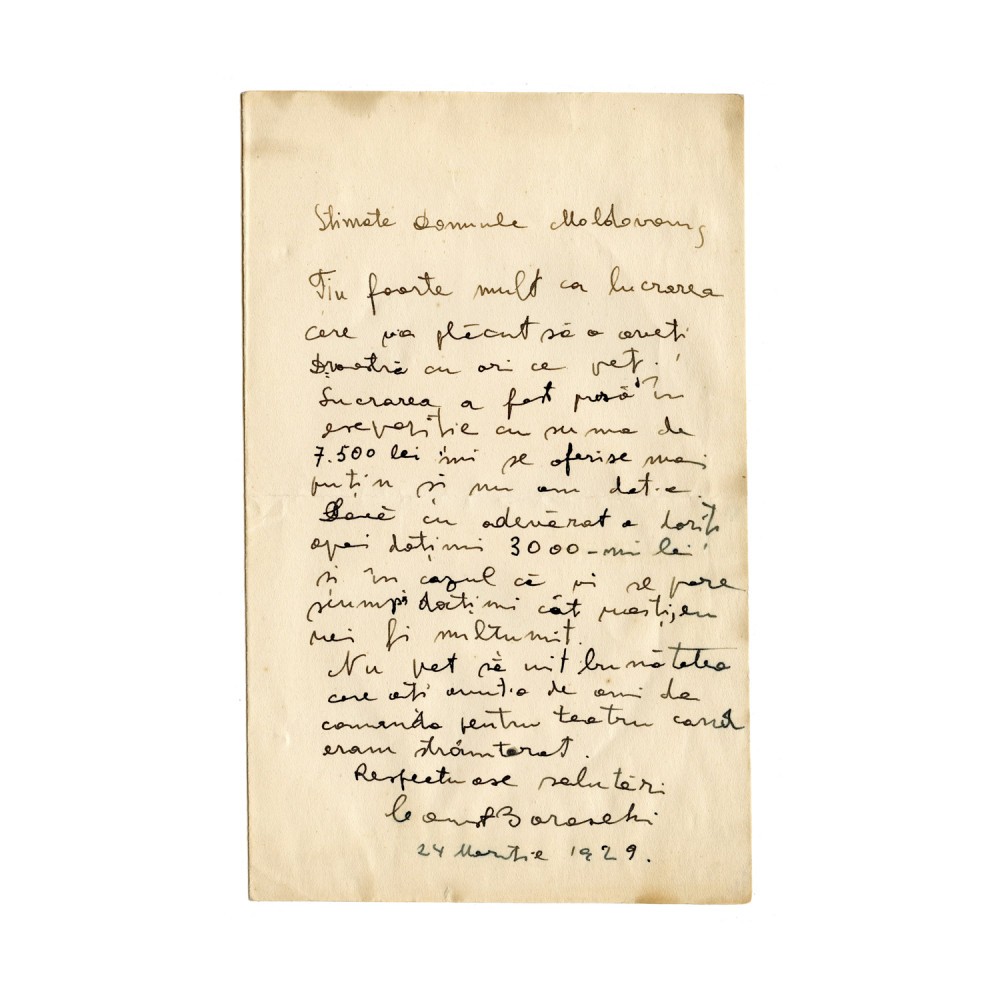 Stimate Domnule Moldovanu,
Țiu foarte mult ca lucrarea
care va plăcut să o aveți
Dvoastră cu ori ce preț.
Lucrarea a fost pusă în
expoziție cu suma de
7.500 lei îmi se oferise mai
puțin și nu am dat-o.
Dacă cu adevărat o doriți
apoi dațimi 3000-mii lei
și în cazul că vi se pare
scump dațimi cât
fi mulțumit.
Nu pot să uit bunătatea
care ați avut-o de ami da
comanda pentru teatru cand
eram strâmtorat.
Respectuose salutări
Const Baraschi
24 Martie 1929.